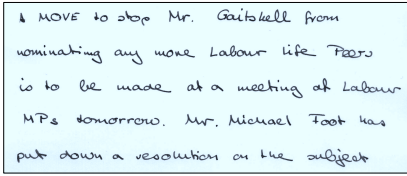 A MOVE to stop Mr. Gaitskell from
nominating any more Labour life Peers
is to be made at a meeting of Labour
MPs tomorrow. Mr. Michael Foot has
put down a resolution on the subject